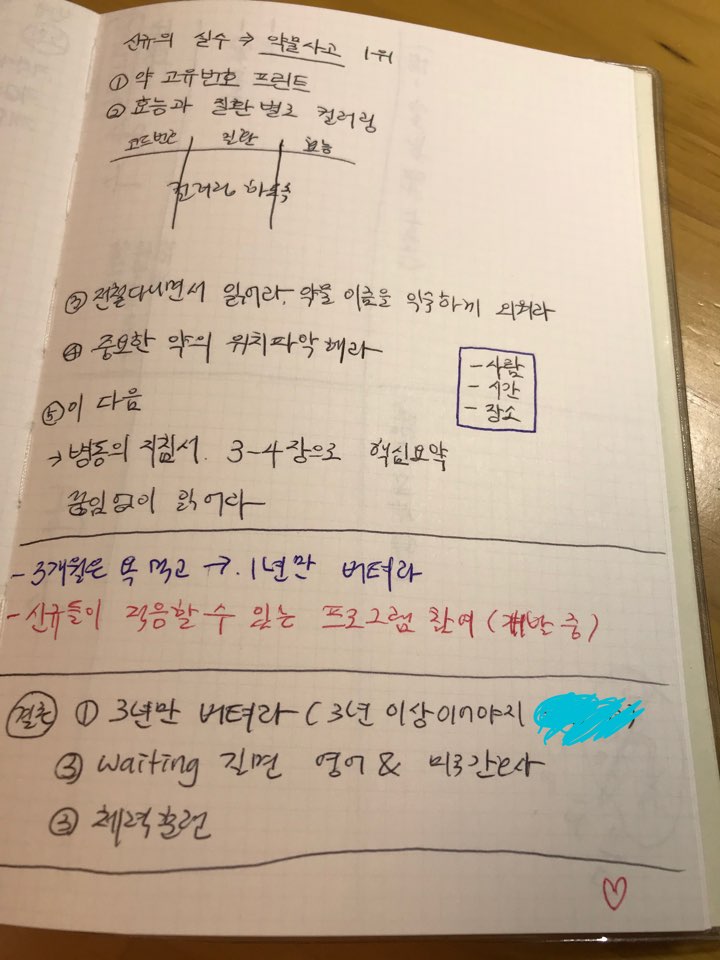 신규의 실수 → 약물사고 1위
① 약 고유번호 프린트
② 효능과 질환별로 컬러링
코드번호 질환 효능
컬러링 하
③ 전철다니면서 읽어라. 약물 이름을 익숙하게 외워라
④ 중요한 약의 위치파악해라
- 사람
- 시간
- 장소
⑤ 이 다음
→ 병동의 지침서. 3-4장으로 핵심요약
끊임없이 읽어라
- 3개월은 욕 먹고 → 1년만 버텨라
- 신규들이 적응할 수 있는 프로그램 참여 (개발 중)
결론 ① 3년만 버텨라 (3년 이상이어야지
③ waiting 길면 영어 & 미국간호사
③ 체력훈련